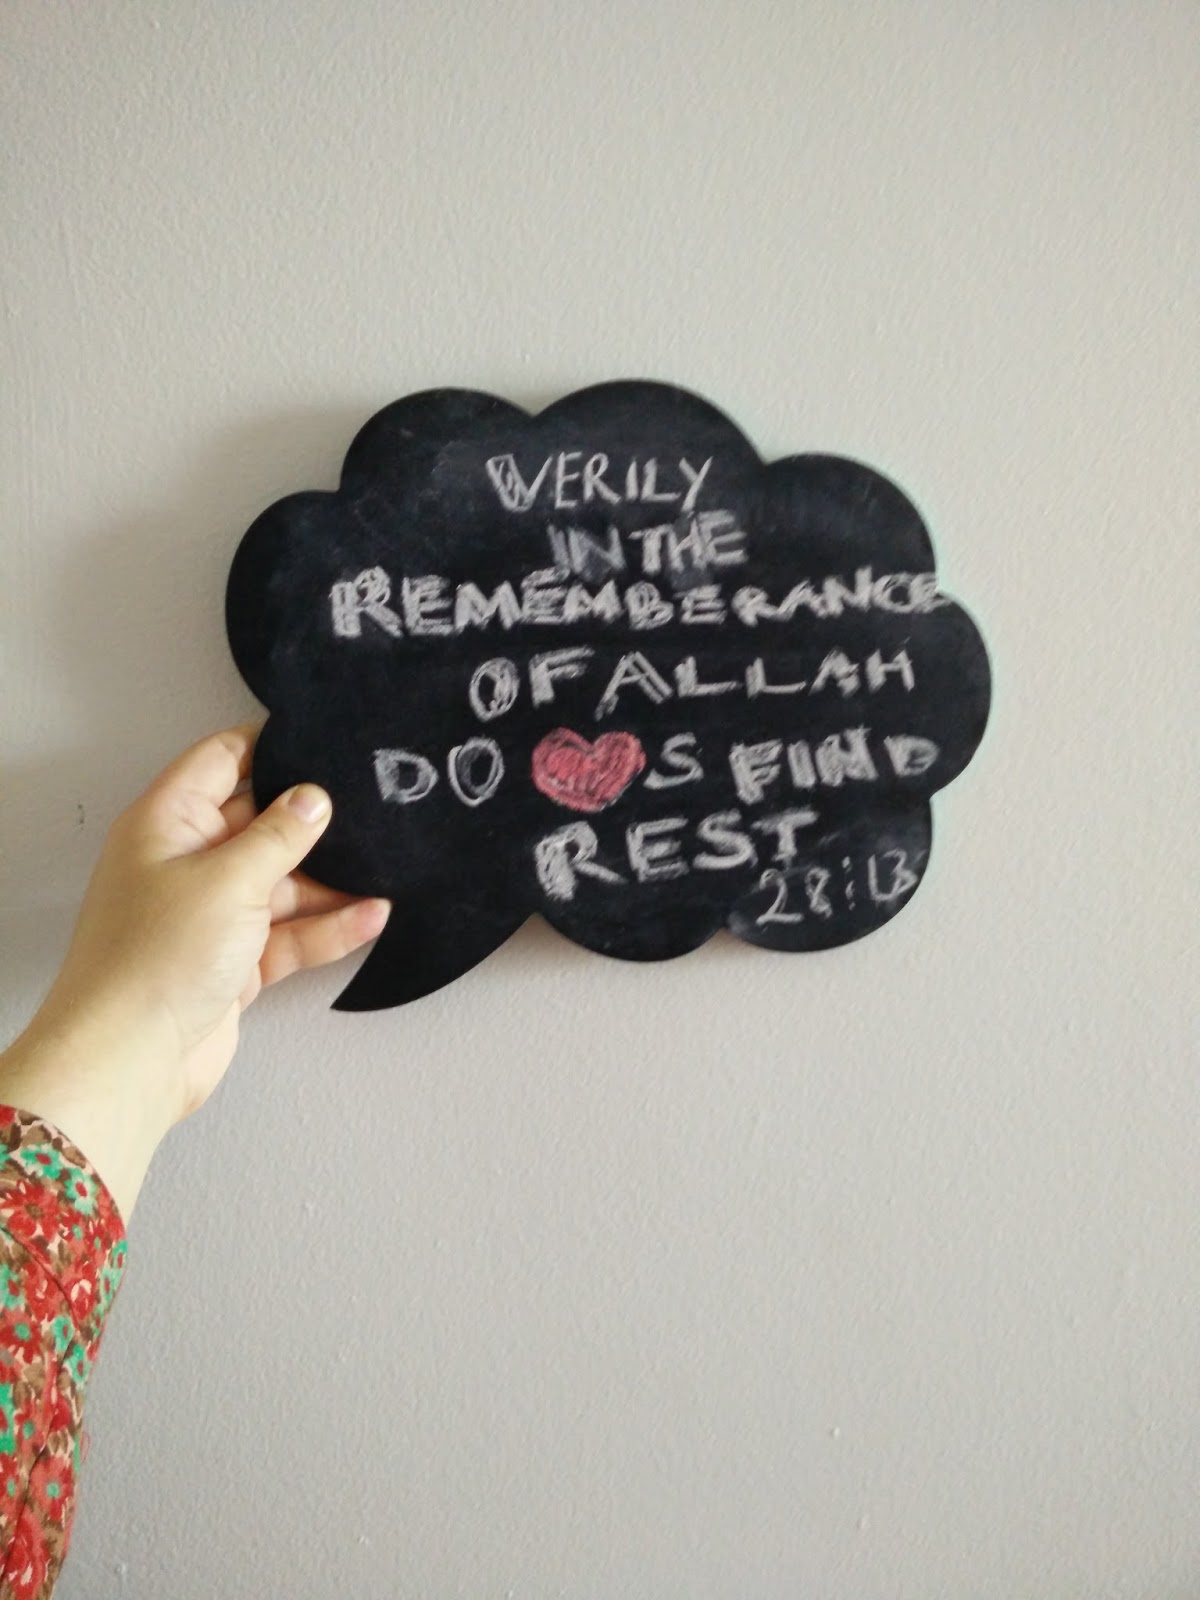 VERILY
IN THE
REMEMBERANCE
OF ALLAH
DO ❤S FIND
REST
28:13